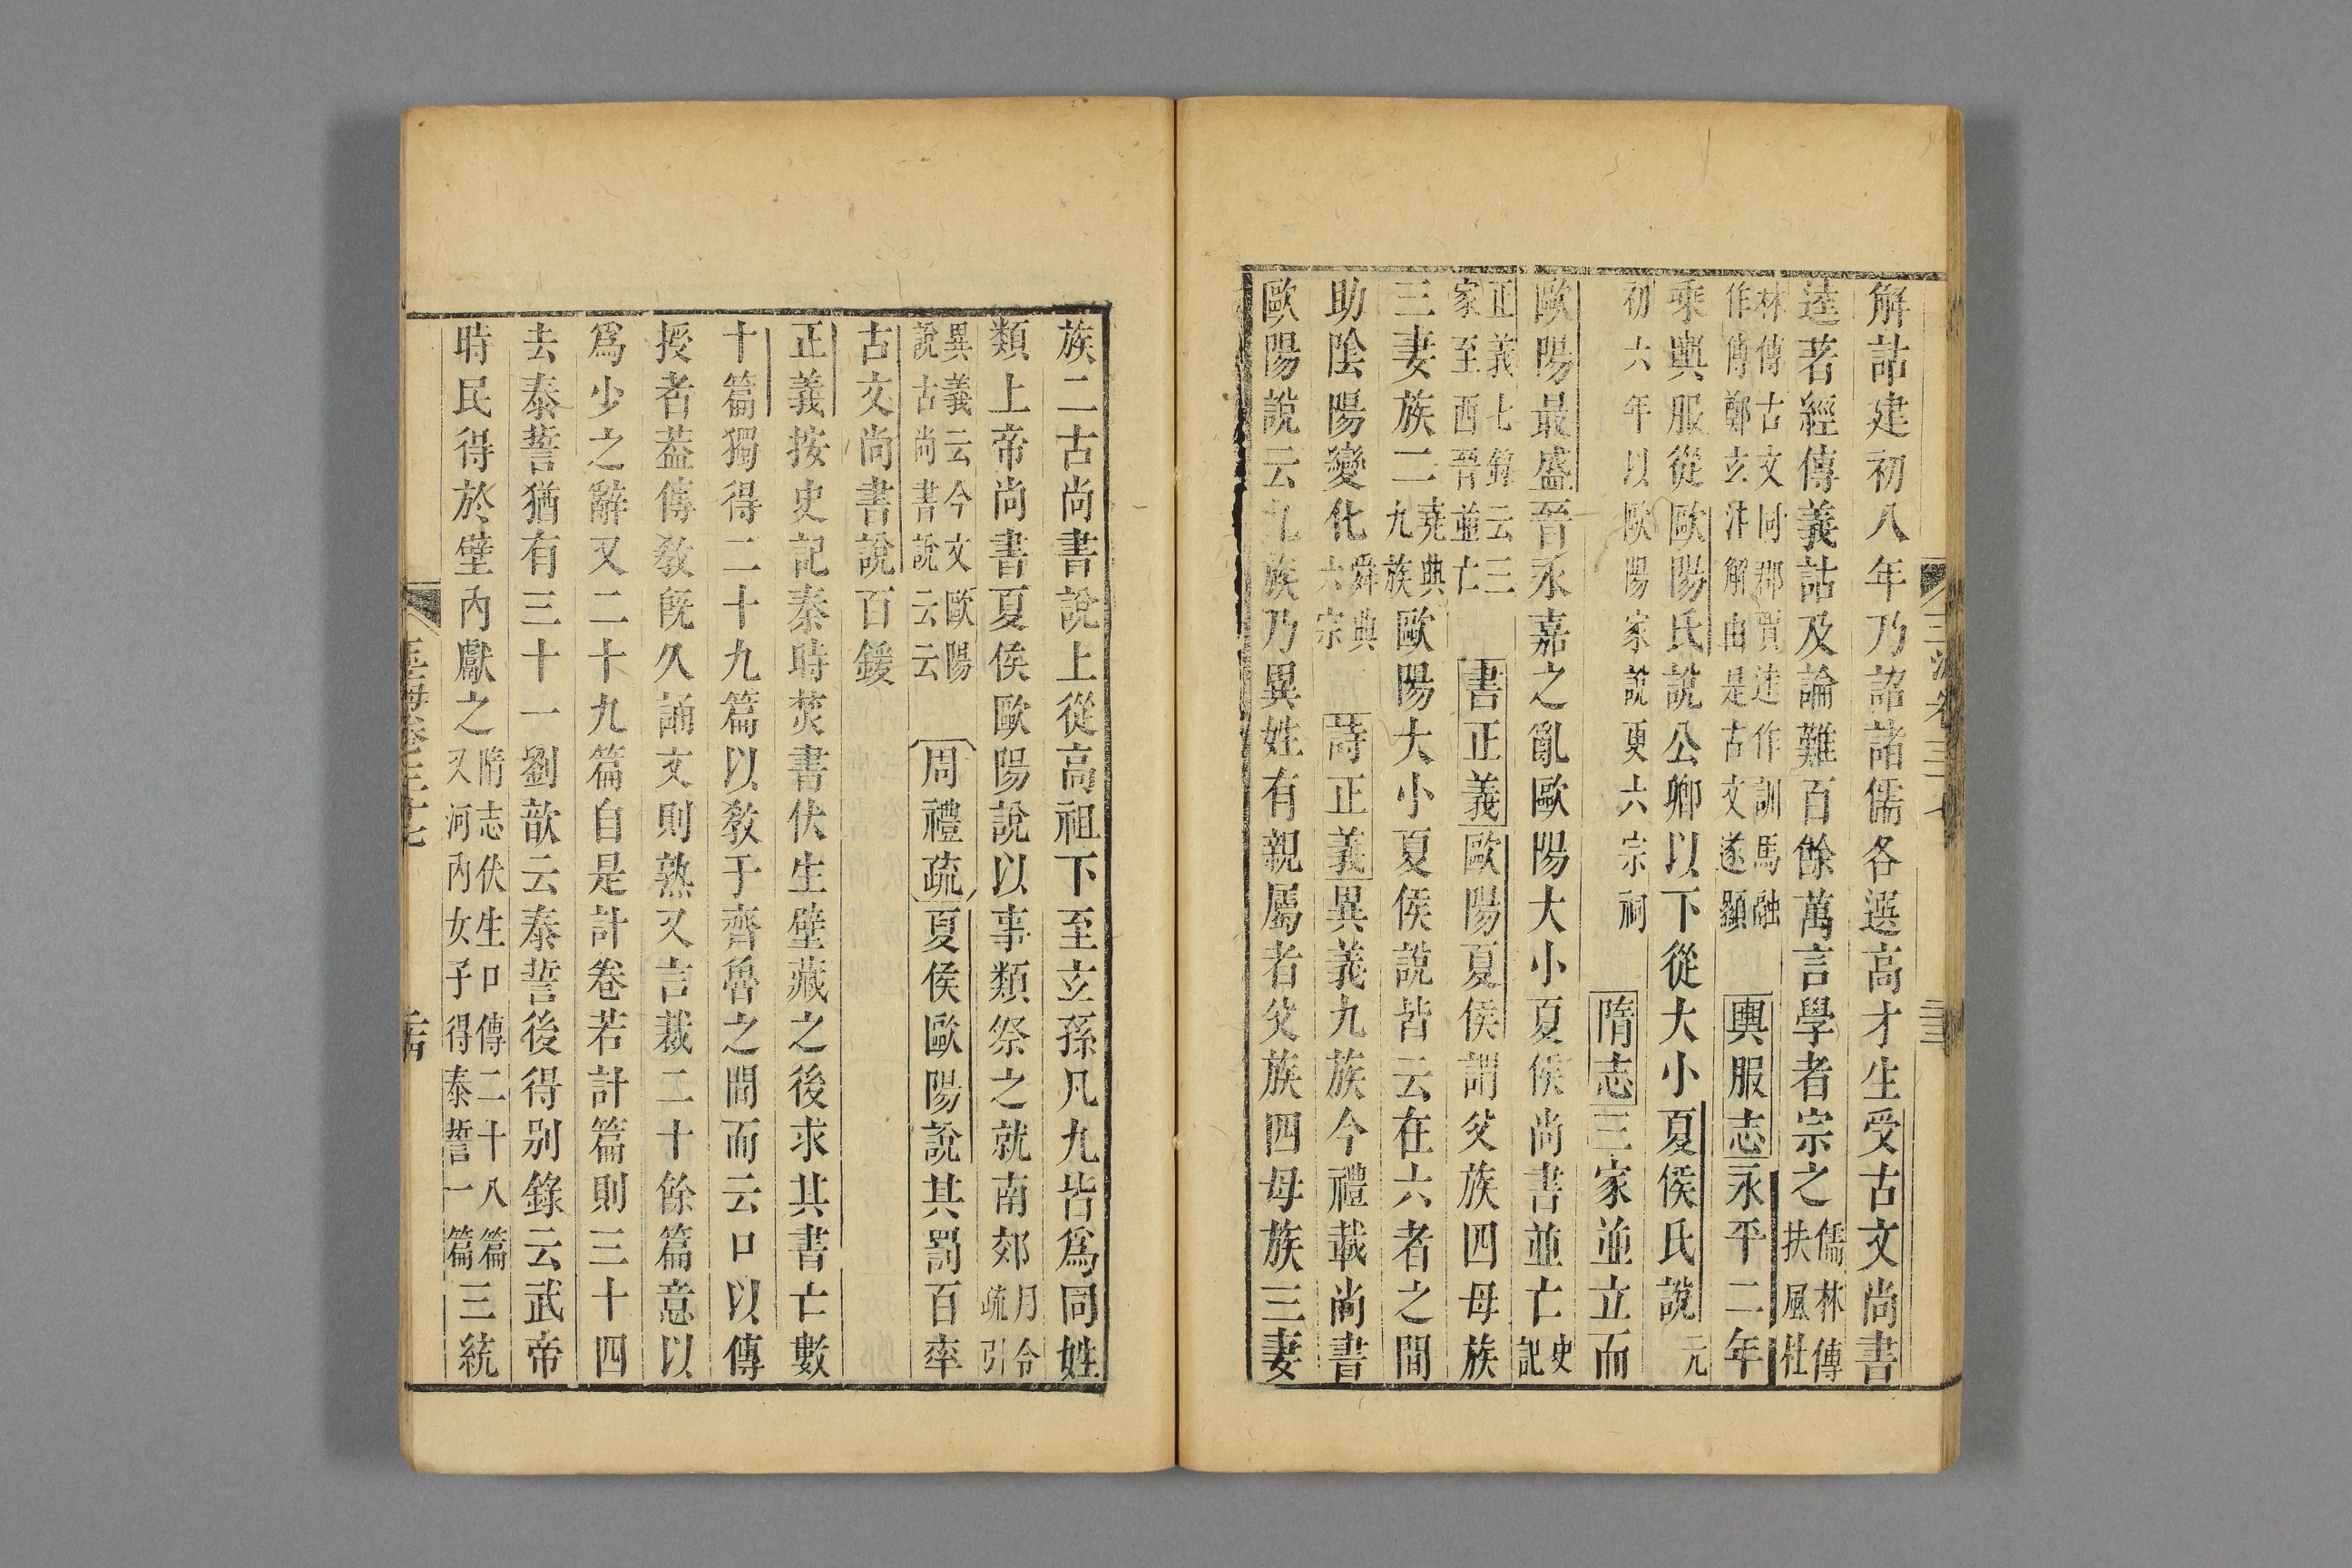 解詁建初八年乃詔諸儒各選高才生受古文尚書
逵著經傳義詁及論難百餘萬言學者宗之儒林傳扶風杜
林傳古文同郡賈逵作訓馬融作傳鄭玄注解由是古文遂顯 輿服志永平二年
乘輿服從歐陽氏說公卿以下從大小夏侯氏說元
初六年以歐陽家說更六宗祠 隋志三家並立而
歐陽最盛晉永嘉之亂歐陽大小夏侯尚書並亡史記
正義七錄云三家至西晉並亡 書正義歐陽夏侯謂父族四母族
三妻族二堯典九族歐陽大小夏侯說皆云在六者之間
助陰陽變化舜典六宗 詩正義異義九族今禮戴尚書
歐陽說云九族乃異姓有親屬者父族四母族三妻
三
族二古尚書說上從高祖下至玄孫凡九皆爲同姓
類上帝尚書夏侯歐陽說以事類祭之就南郊月令疏引
異義云今文歐陽說古尚書說云云 周禮疏夏侯歐陽說其罰百率
古文尚書說百鍰
正義按史記秦時焚書伏生壁藏之後求其書亡數
十篇獨得二十九篇以敎于齊魯之間而云口以傳
授者葢傳敎旣久誦文則熟又言裁二十餘篇意以
爲少之辭又二十九篇自是計卷若計篇則三十四
去泰誓猶有三十一劉歆云泰誓後得别錄云武帝
時民得於壁內獻之隋志伏生口傳二十八篇又河內女子得泰誓一篇三統
玉海卷三十七